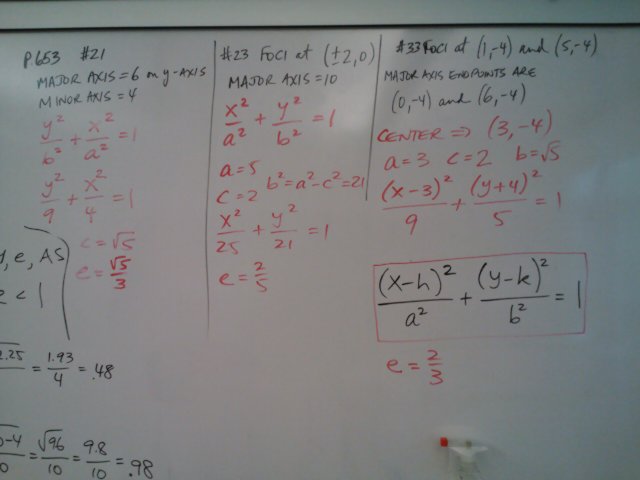 P.653 #21
MAJOR AXIS = 6 on y-AXIS
MINOR AXIS = 4
y²/b² + x²/a² = 1
y²/9 + x²/4 = 1
c = √5
e = √5/3
, e, AS
e < 1
= 1.93/4 = .48
= √96/10 = 9.8/10 = .98
#23 FOCI at (±2,0)
MAJOR AXIS = 10
x²/a² + y²/b² = 1
a = 5
c = 2 b² = a² - c² = 21
x²/25 + y²/21 = 1
e = 2/5
#33 FOCI at (1,-4) and (5,-4)
MAJOR AXIS ENDPOINTS ARE
(0,-4) and (6,-4)
CENTER ⇒ (3,-4)
a = 3 c = 2 b = √5
(x-3)²/9 + (y+4)²/5 = 1
(x-h)²/a² + (y-k)²/b² = 1
e = 2/3